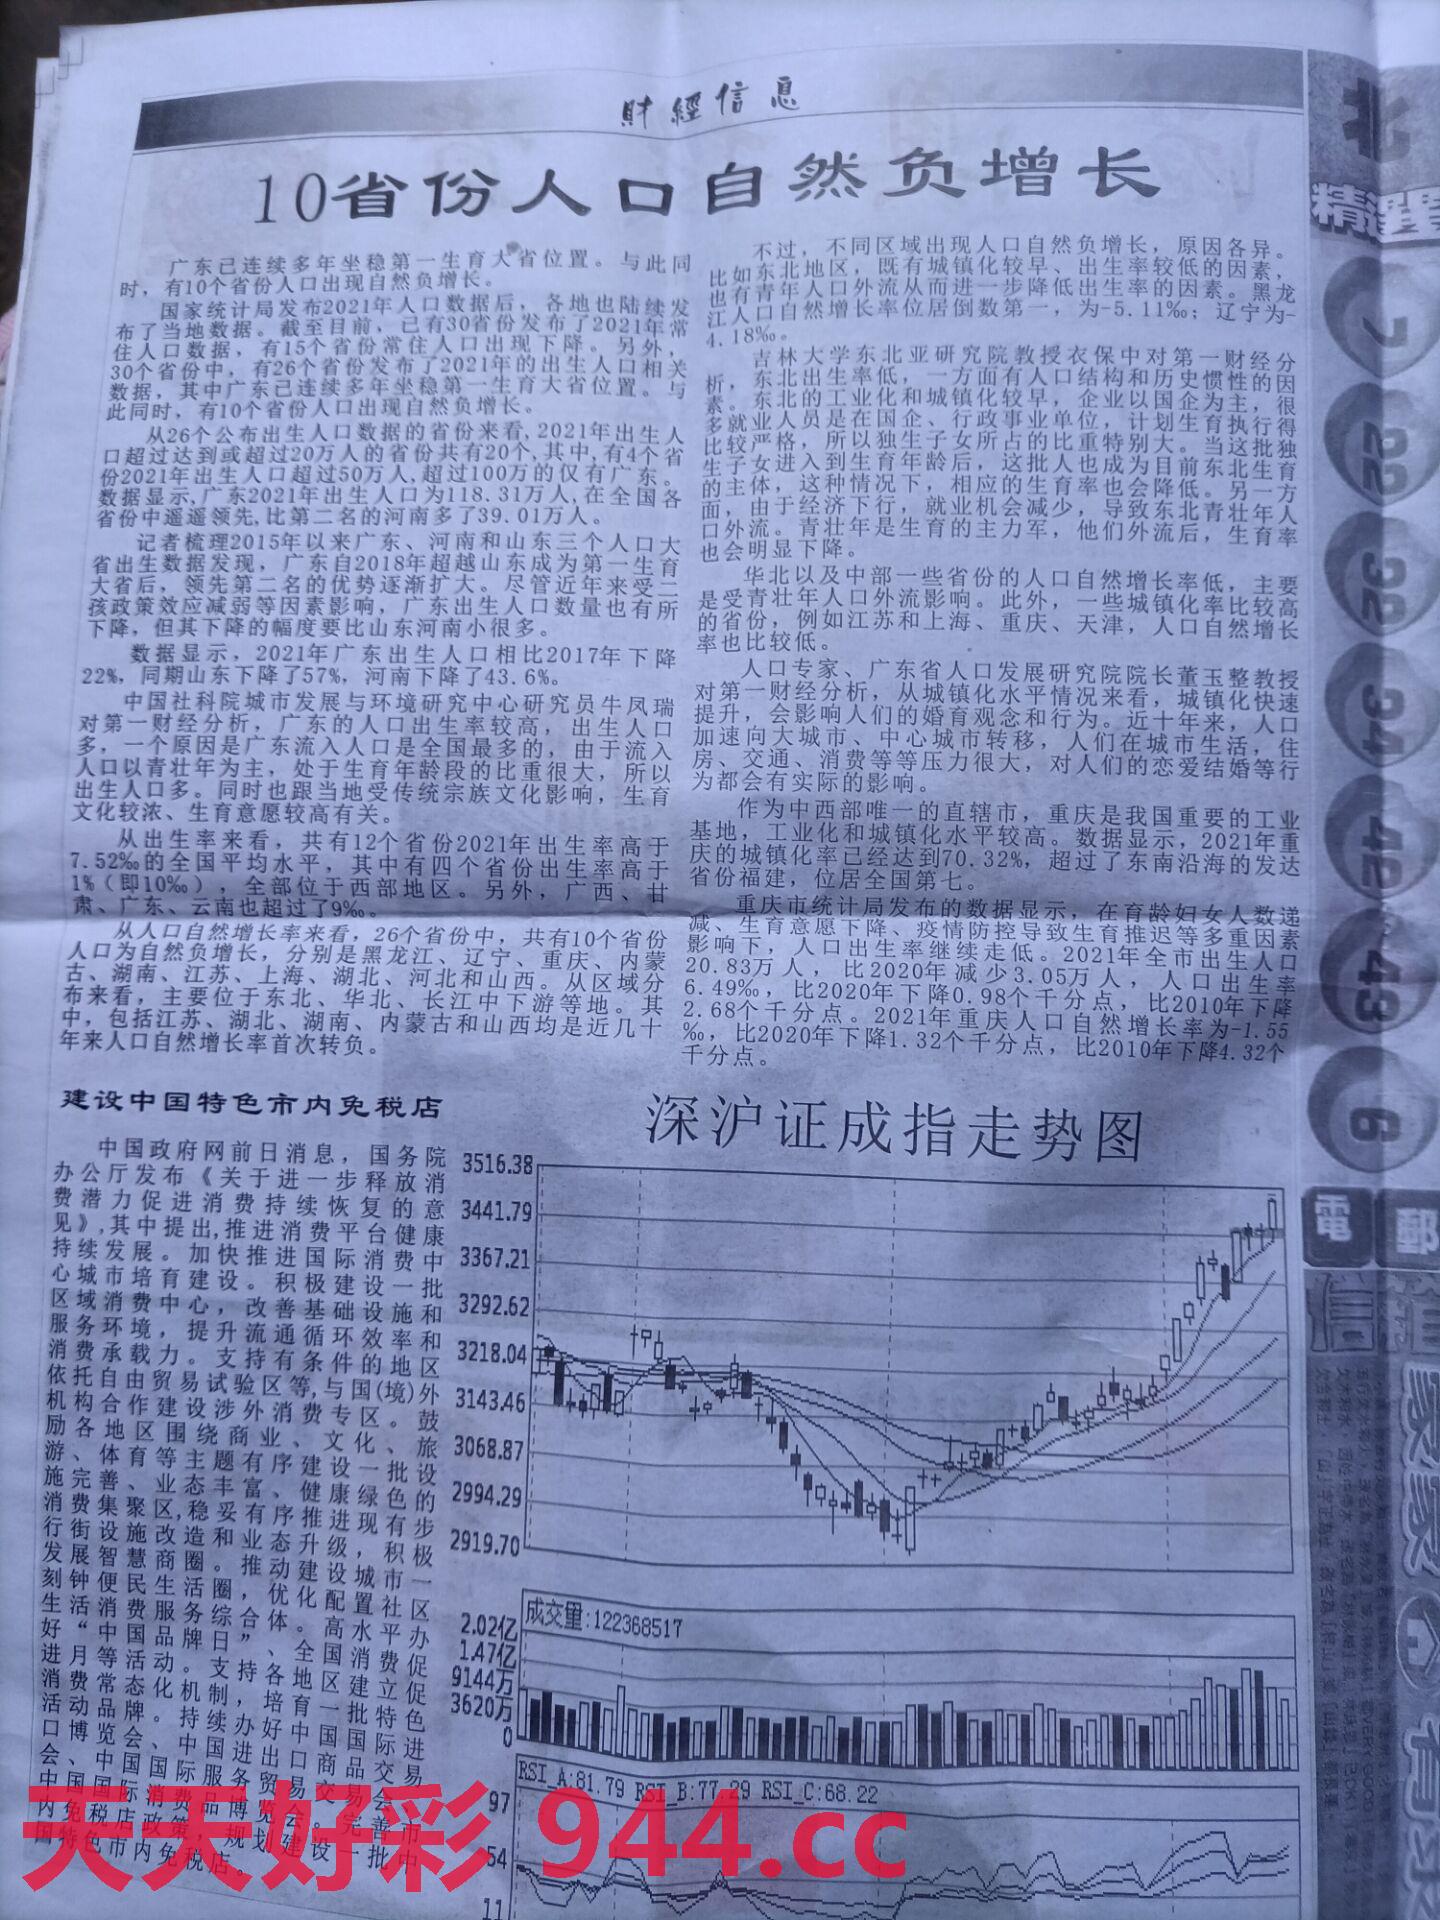 財經信息
10省份人口自然负增长
广东已连续多年坐稳第一生育大省位置。与此同
时，有10个省份人口出现自然负增长。
国家统计局发布2021年人口数据后，各地也陆续发
布了当地数据。截至目前，已有30省份发布了2021年常
住人口数据，有15个省份常住人口出现下降。另外，
30个省份中，有26个省份发布了2021年的出生人口相关
数据，其中广东已连续多年坐稳第一生育大省位置。与
此同时，有10个省份人口出现自然负增长。
从26个公布出生人口数据的省份来看,2021年出生人
口超过达到或超过20万人的省份共有20个,其中,有4个省
份2021年出生人口超过50万人,超过100万的仅有广东。
数据显示,广东2021年出生人口为118.31万人,在全国各
省份中遥遥领先,比第二名的河南多了39.01万人。
记者梳理2015年以来广东、河南和山东三个人口大
省出生数据发现，广东自2018年超越山东成为第一生育
大省后，领先第二名的优势逐渐扩大。尽管近年来受二
孩政策效应减弱等因素影响，广东出生人口数量也有所
下降，但其下降的幅度要比山东河南小很多。
数据显示，2021年广东出生人口相比2017年下降
22%，同期山东下降了57%，河南下降了43.6%。
中国社科院城市发展与环境研究中心研究员牛凤瑞
对第一财经分析，广东的人口出生率较高，出生人口
多，一个原因是广东流入人口是全国最多的，由于流入
人口以青壮年为主，处于生育年龄段的比重很大，所以
出生人口多。同时也跟当地受传统宗族文化影响，生育
文化较浓、生育意愿较高有关。
从出生率来看，共有12个省份2021年出生率高于
7.52‰的全国平均水平，其中有四个省份出生率高于
1%（即10‰），全部位于西部地区。另外，广西、甘
肃、广东、云南也超过了9‰。
从人口自然增长率来看，26个省份中，共有10个省份
人口为自然负增长，分别是黑龙江、辽宁、重庆、内蒙
古、湖南、江苏、上海、湖北、河北和山西。从区域分
布来看，主要位于东北、华北、长江中下游等地。其
中，包括江苏、湖北、湖南、内蒙古和山西均是近几十
年来人口自然增长率首次转负。
不过，不同区域出现人口自然负增长，原因各异。
比如东北地区，既有城镇化较早、出生率较低的因素，
也有青年人口外流从而进一步降低出生率的因素。黑龙
江人口自然增长率位居倒数第一，为-5.11‰；辽宁为-
4.18‰。
吉林大学东北亚研究院教授衣保中对第一财经分
析，东北出生率低，一方面有人口结构和历史惯性的因
素。东北的工业化和城镇化较早，企业以国企为主，很
多就业人员是在国企、行政事业单位，计划生育执行得
比较严格，所以独生子女所占的比重特别大。当这批独
生子女进入到生育年龄后，这批人也成为目前东北生育
的主体，这种情况下，相应的生育率也会降低。另一方
面，由于经济下行，就业机会减少，导致东北青壮年人
口外流。青壮年是生育的主力军，他们外流后，生育率
也会明显下降。
华北以及中部一些省份的人口自然增长率低，主要
是受青壮年人口外流影响。此外，一些城镇化率比较高
的省份，例如江苏和上海、重庆、天津，人口自然增长
率也比较低。
人口专家、广东省人口发展研究院院长董玉整教授
对第一财经分析，从城镇化水平情况来看，城镇化快速
提升，会影响人们的婚育观念和行为。近十年来，人口
加速向大城市、中心城市转移，人们在城市生活，住
房、交通、消费等等压力很大，对人们的恋爱结婚等行
为都会有实际的影响。
作为中西部唯一的直辖市，重庆是我国重要的工业
基地，工业化和城镇化水平较高。数据显示，2021年重
庆的城镇化率已经达到70.32%，超过了东南沿海的发达
省份福建，位居全国第七。
重庆市统计局发布的数据显示，在育龄妇女人数递
减、生育意愿下降、疫情防控导致生育推迟等多重因素
影响下，人口出生率继续走低。2021年全市出生人口
20.83万人，比2020年减少3.05万人，人口出生率
6.49‰，比2020年下降0.98个千分点，比2010年下降
2.68个千分点。2021年重庆人口自然增长率为-1.55
‰，比2020年下降1.32个千分点，比2010年下降4.32个
千分点。
建设中国特色市内免税店
中国政府网前日消息，国务院
办公厅发布《关于进一步释放消
费潜力促进消费持续恢复的意
见》,其中提出,推进消费平台健康
持续发展。加快推进国际消费中
心城市培育建设。积极建设一批
区域消费中心，改善基础设施和
服务环境，提升流通循环效率和
消费承载力。支持有条件的地区
依托自由贸易试验区等,与国(境)外
机构合作建设涉外消费专区。鼓
励各地区围绕商业、文化、旅
游、体育等主题有序建设一批设
施完善、业态丰富、健康绿色的
消费集聚区,稳妥有序推进现有步
行街设施改造和业态升级，积极
发展智慧商圈。推动建设城市一
刻钟便民生活圈，优化配置社区
生活消费服务综合体。高水平办
好“中国品牌日”、全国消费促
进月等活动。支持各地区建立促
消费常态化机制，培育一批特色
活动品牌。持续办好中国国际进
口博览会、中国进出口商品交易
会、中国国际服务贸易交易会、
中国国际消费品博览会。完善市
内免税店政策，规划建设一批中
国特色市内免税店。
深沪证成指走势图
3516.38
3441.79
3367.21
3292.62
3218.04
3143.46
3068.87
2994.29
2919.70
成交量:122368517
2.02亿
1.47亿
9144万
3620万
0
RSI_A:81.79 RSI_B:77.29 RSI_C:68.22
97
54
11
北
精选
7
22
32
34
42
43
6
電
郵
天天好彩 944.cc